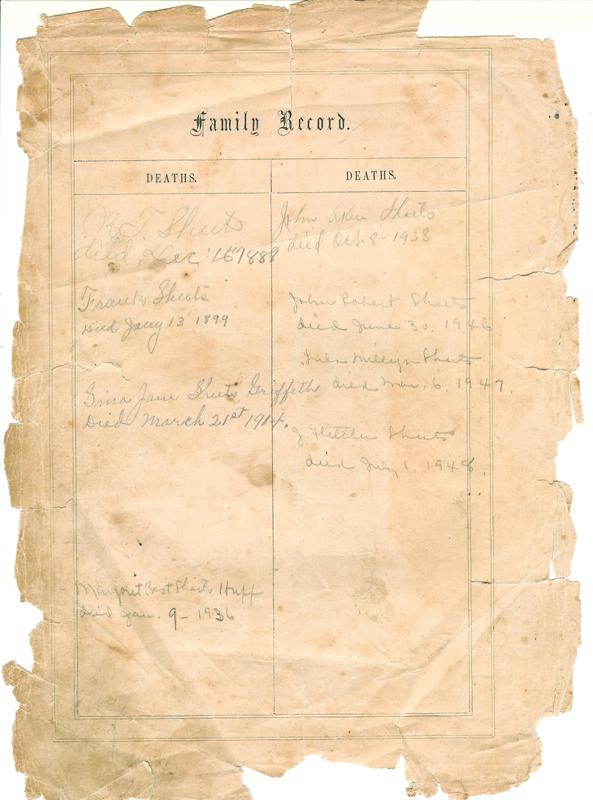 Family Record.
DEATHS.
R. T. Sheets
died Dec 15 1888
Frank Sheets
Died Jany 13 1899
Jane Sheets Griffeths
Died March 21st 1914.
Margaret Sheets Huff
died Jan. 9 - 1936
DEATHS.
John Akin Sheets
died Oct 8 - 1938
John Robert Sheets
died June 30, 1946
Sheets
died Mar. 6. 1947.
J Fletcher Sheets
died July 1, 1948.